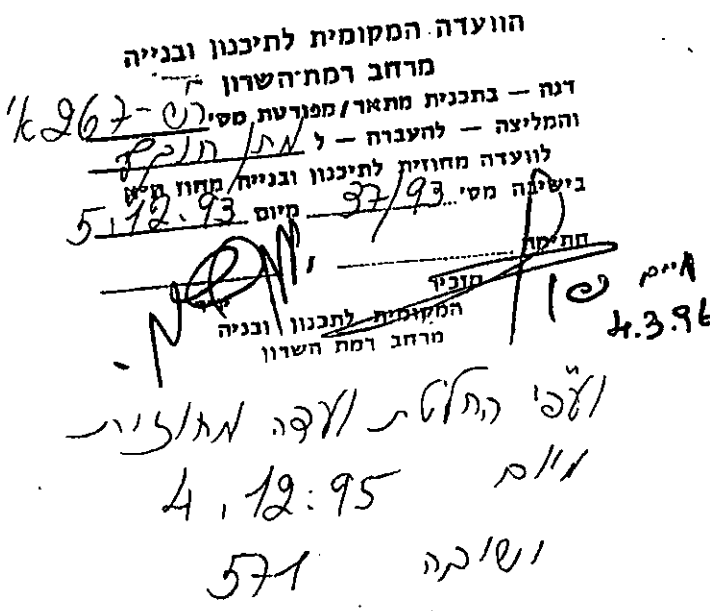 הוועדה המקומית לתיכנון ובנייה
מרחב רמת־השרון
דנה — בתכנית מתאר/מפורטת מסי רש-267 א'
והמליצה — להעברה — ל מתן תוקף
לוועדה מחוזית לתיכנון ובנייה מחוז ת"א
בישיבה מסי 37/93 מיום 5.12.93
חתימה
מזכיר
המקומית לתכנון ובניה
מרחב רמת השרון
4.3.96
ועפ"י החלטת ועדה מחוזית
מיום 4.12.95
ישיבה 571